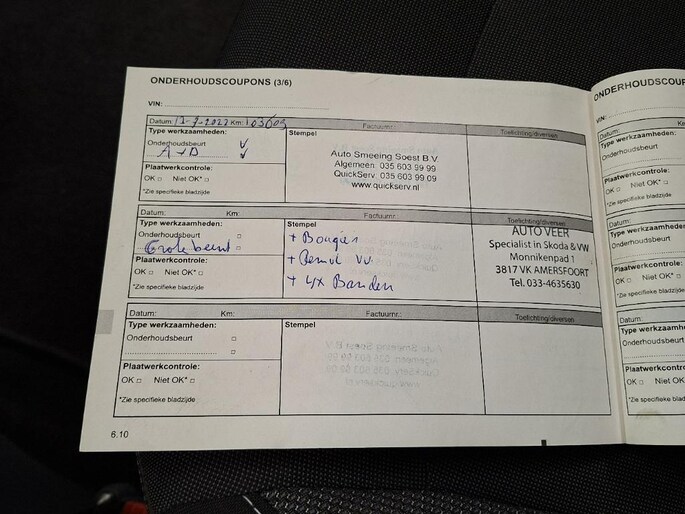 ONDERHOUDSCOUPONS (3/6)
VIN:
Datum: Km: Factuurnr.: Toelichting/diversen
Type werkzaamheden: Stempel
Onderhoudsbeurt ✓
A+B ✓
Auto Smeeing Soest B.V.
Algemeen: 035 603 99 99
QuickServ: 035 603 99 09
www.quickserv.nl
Plaatwerkcontrole:
OK □ Niet OK* □
*Zie specifieke bladzijde
Datum: Km: Factuurnr.: Toelichting/diversen
Type werkzaamheden: Stempel
Onderhoudsbeurt □
Grote beurt □
+ Bougies
+ Remol vv.
+ 4x Banden
AUTO VEER
Specialist in Skoda & VW
Monnikenpad 1
3817 VK AMERSFOORT
Tel. 033-4635630
Plaatwerkcontrole:
OK □ Niet OK* □
*Zie specifieke bladzijde
Datum: Km: Factuurnr.: Toelichting/diversen
Type werkzaamheden: Stempel
Onderhoudsbeurt □
Plaatwerkcontrole:
OK □ Niet OK* □
*Zie specifieke bladzijde
6.10
ONDERHOUDSCOUP
VIN:
Datum:
Type werkzaamheden:
Onderhoudsbeurt
Plaatwerkcontrole:
OK □ Niet OK* □
*Zie specifieke bladzijde
Datum:
Type werkzaamheden:
Onderhoudsbeurt
Plaatwerkcontrole
OK □ Niet OK*
*Zie specifieke bladzijde
Datum:
Type werkzaamhe
Onderhoudsbeurt
Plaatwerkcontro
OK □ Niet OK
*Zie specifieke bladz